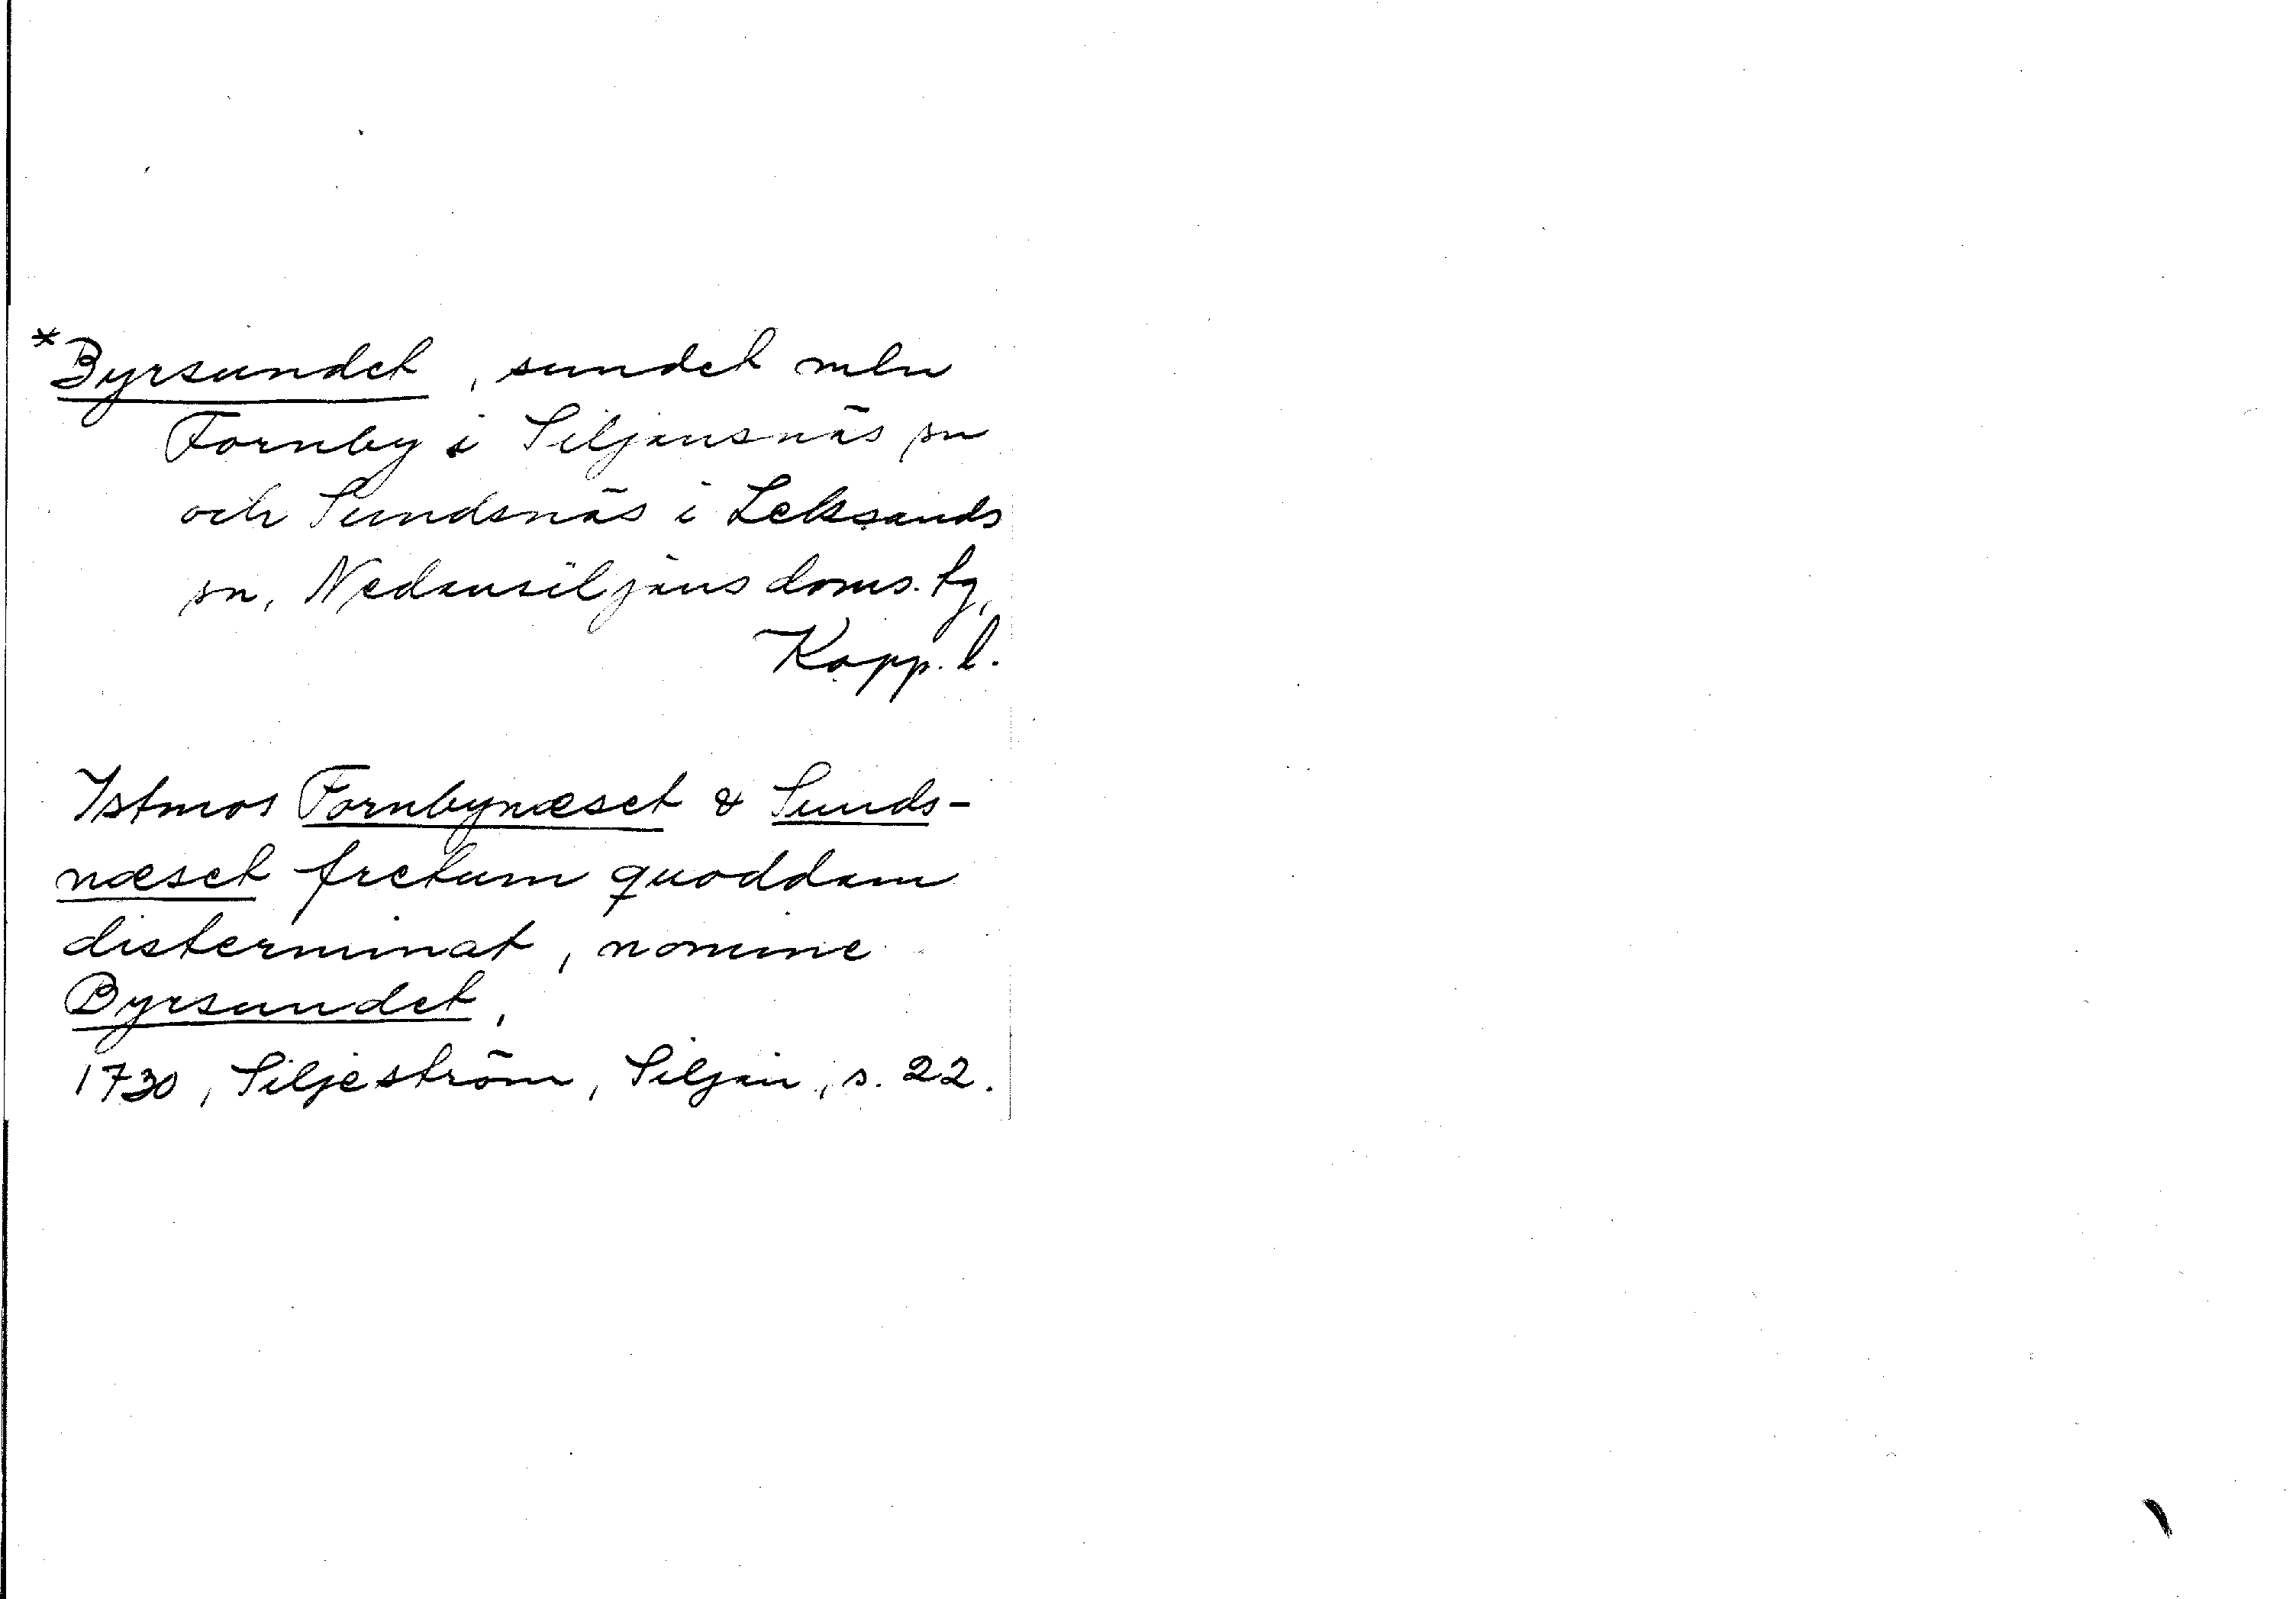 *Byrsundet, sundet mln
Fornby i Siljansnäs sn
och Sundsnäs i Leksands
sn, Nedansiljans doms. tg,
Kopp. l.
Istmos Fornbynæset & Sunds-
næset fretum quoddam
disterminat, nomine
Byrsundet,
1730, Siljeström, Siljan, s. 22.